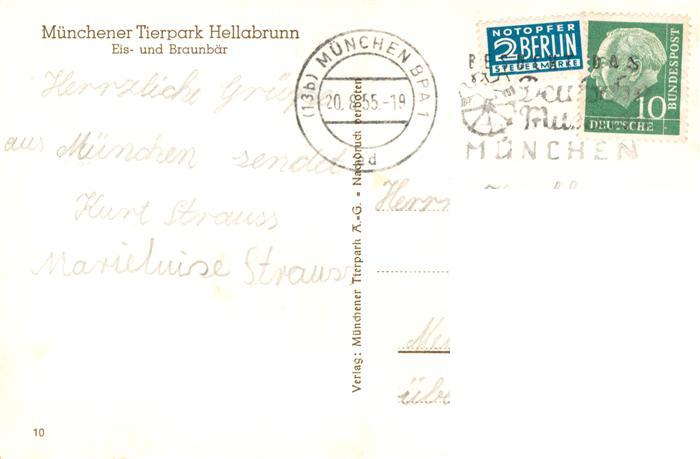 Münchener Tierpark Hellabrunn
Eis- und Braunbär
Herzliche Grüße
aus München sendet
Kurt Strauss
Marieluise Strauss
10
Verlag: Münchener Tierpark A.-G. = Nachdruck verboten
(13b) MÜNCHEN BPA 1
20.8.55.-19
d
NOTOPFER
2 BERLIN
STEUERMARKE
DEUTSCHE
BUNDESPOST
10
BESUCHT DAS
Deutsche
MÜNCHEN
Herrn